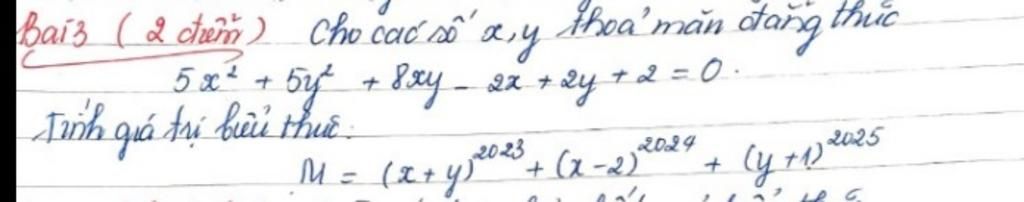 Bài 3 ( 2 điểm ) Cho các số x, y thoả mãn đẳng thức
5x² + 5y² + 8xy - 2x + 2y + 2 = 0.
Tính giá trị biểu thức:
M = (x + y)²⁰²³ + (x - 2)²⁰²⁴ + (y + 1)²⁰²⁵